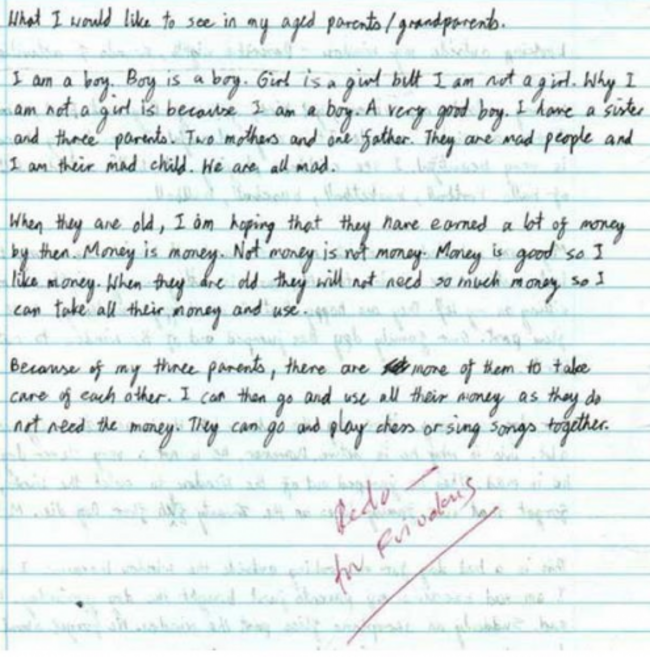 What I would like to see in my aged parents/grandparents.
I am a boy. Boy is a boy. Girl is a girl but I am not a girl. Why I
am not a girl is because I am a boy. A very good boy. I have a sister
and three parents. Two mothers and one father. They are mad people and
I am their mad child. We are all mad.
When they are old, I am hoping that they have earned a lot of money
by then. Money is money. Not money is not money. Money is good so I
like money. When they are old they will not need so much money so I
can take all their money and use.
Because of my three parents, there are more of them to take
care of each other. I can then go and use all their money as they do
not need the money. They can go and play chess or sing songs together.
Redo —
too frivolous